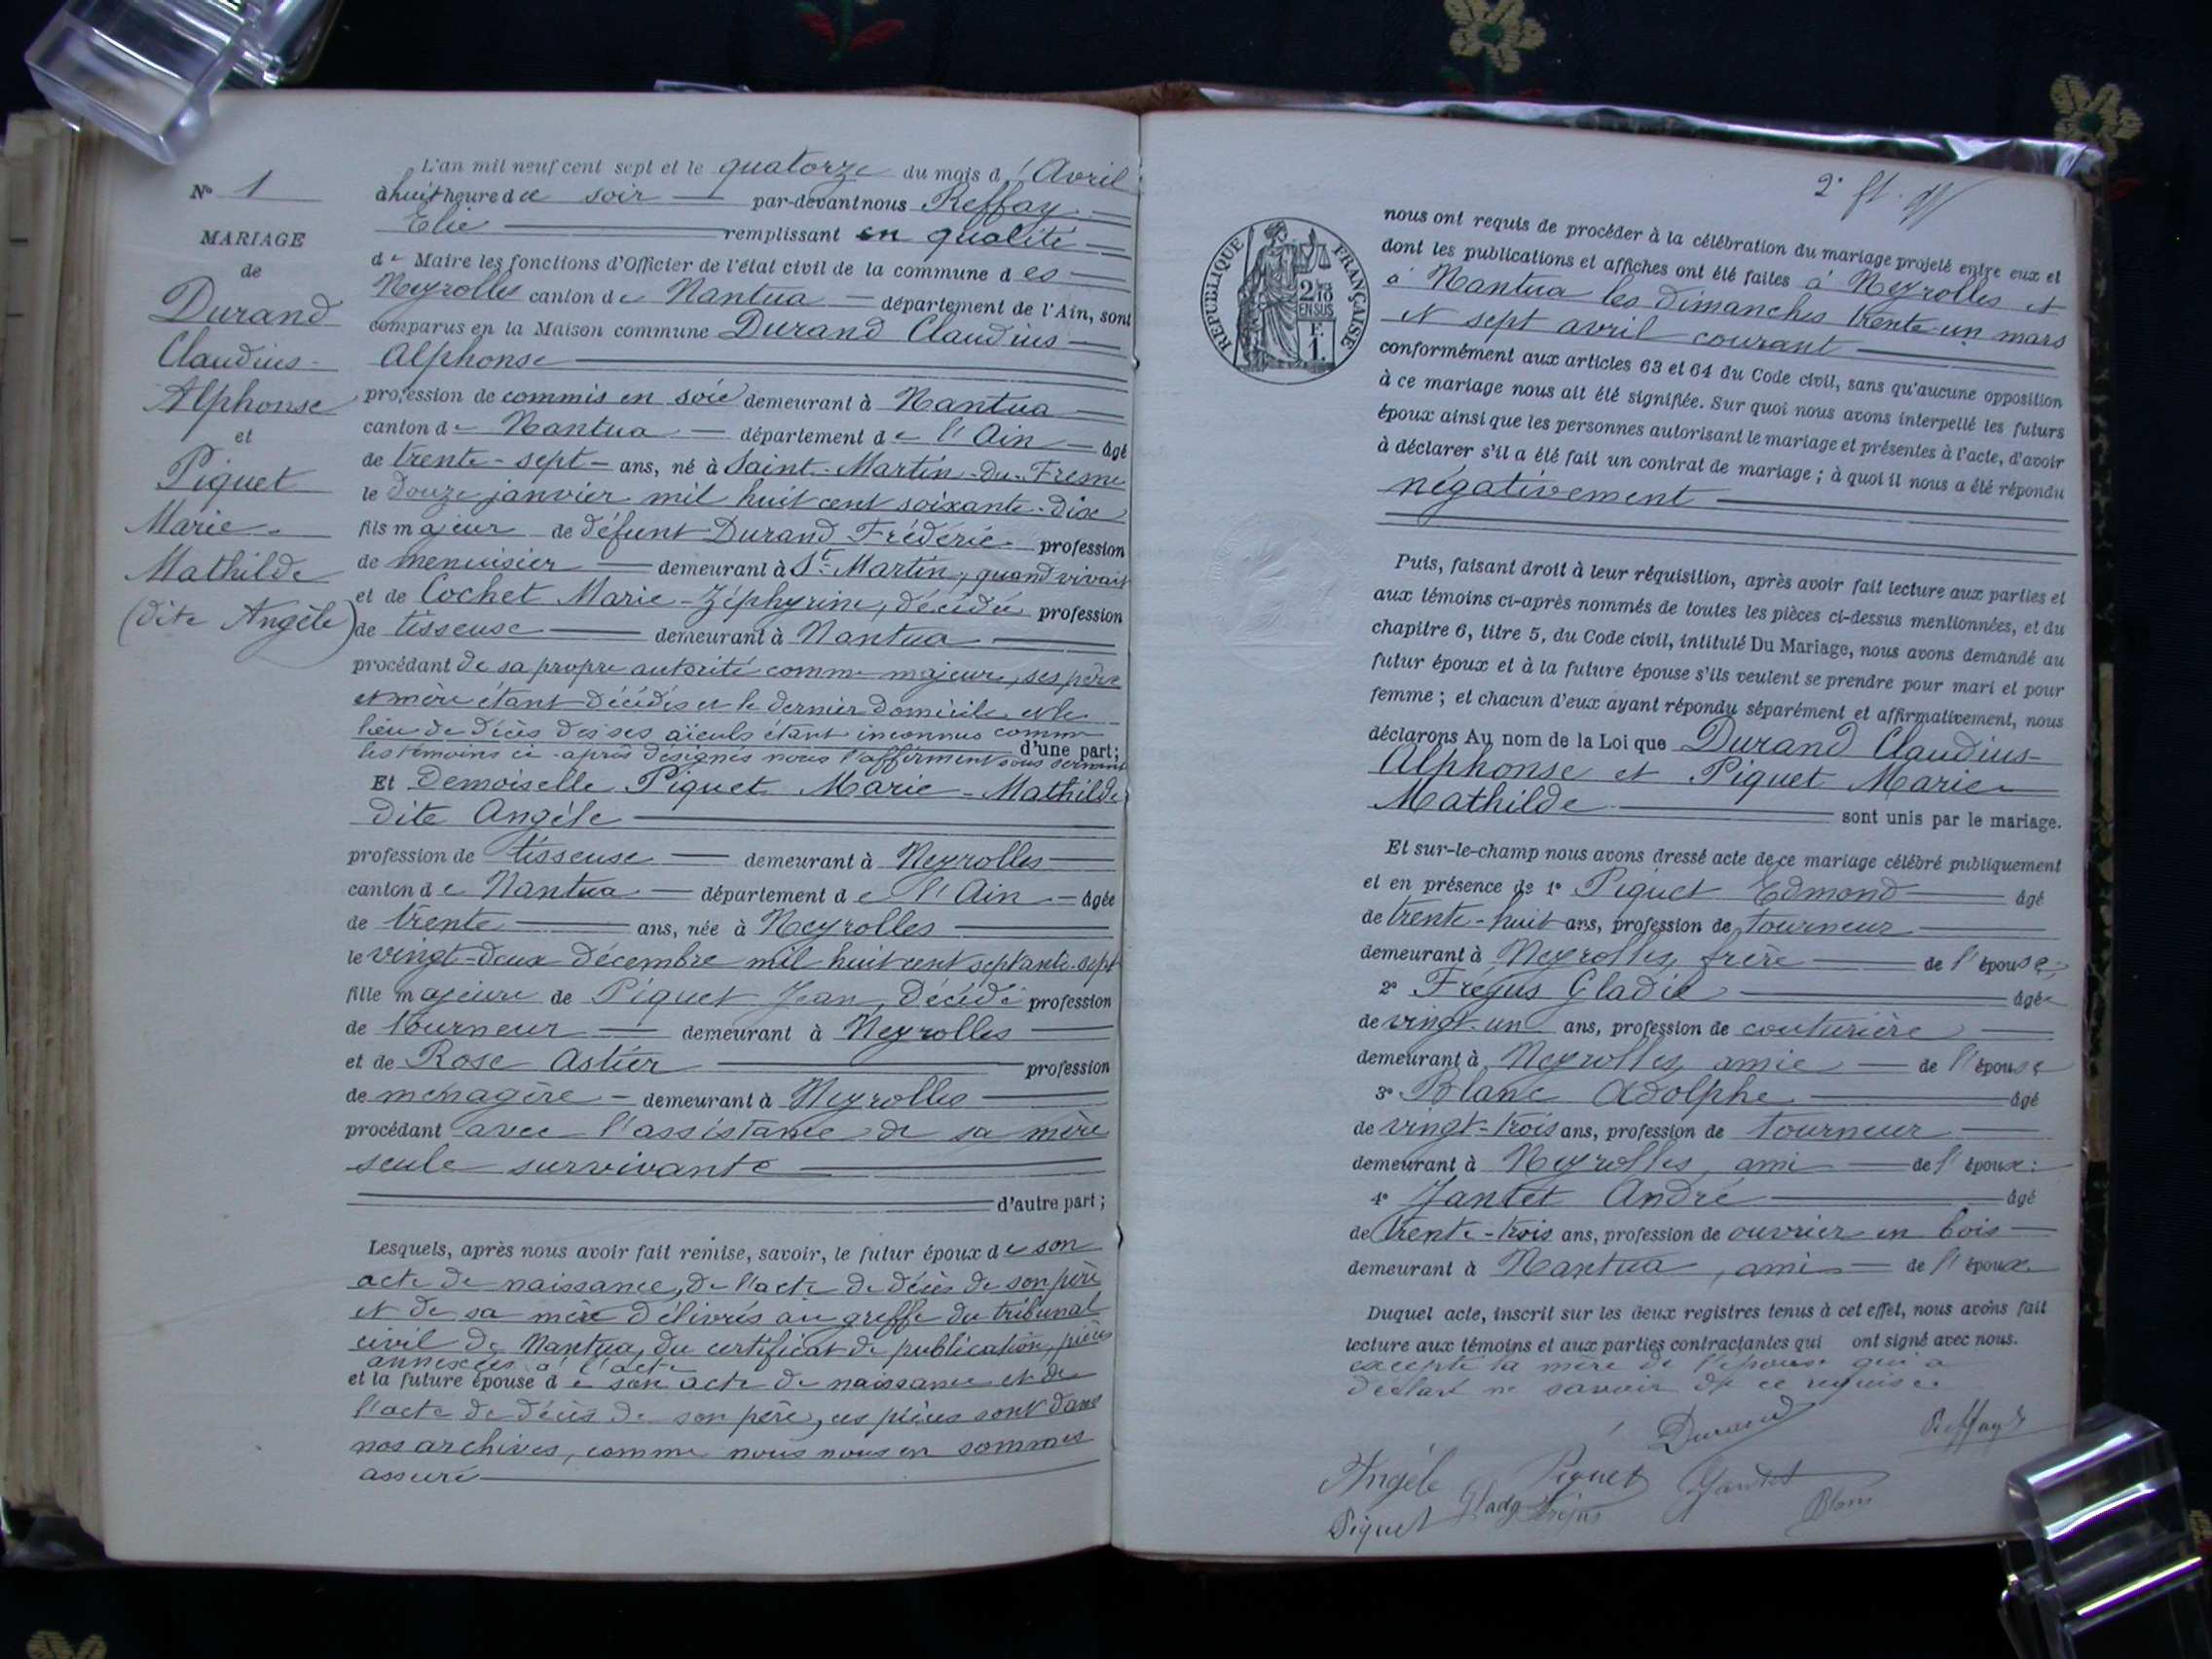 N° 1
MARIAGE
de
Durand
Claudius-
Alphonse
et
Piquet
Marie-
Mathilde
(dite Angèle)
L'an mil neuf cent sept et le quatorze du mois d'Avril
à huit heure de ce soir par-devant nous Reffay
Elie remplissant en qualité
de Maire les fonctions d'Officier de l'état civil de la commune des
Neyrolles canton de Nantua département de l'Ain, sont
comparus en la Maison commune Durand Claudius
Alphonse
profession de commis en soie demeurant à Nantua
canton de Nantua département de l'Ain âgé
de trente-sept ans, né à Saint-Martin-du-Fresne
le douze janvier mil huit cent soixante-dix
fils majeur de défunt Durand Frédéric profession
de menuisier demeurant à St-Martin, quand vivait
et de Cochet Marie-Zéphyrine, décédée profession
de tisseuse demeurant à Nantua
procédant de sa propre autorité comme majeur, ses père
et mère étant décédés et le dernier domicile et le
lieu de décès des ses aïeuls étant inconnus comme
les témoins ci-après désignés nous l'affirment sous serment d'une part;
Et Demoiselle Piquet Marie-Mathilde
dite Angèle
profession de tisseuse demeurant à Neyrolles
canton de Nantua département de l'Ain âgée
de trente ans, née à Neyrolles
le vingt-deux décembre mil huit cent septante-sept
fille majeure de Piquet Jean, décédé profession
de tourneur demeurant à Neyrolles
et de Rose Astier profession
de ménagère demeurant à Neyrolles
procédant avec l'assistance de sa mère
seule survivante
d'autre part;
Lesquels, après nous avoir fait remise, savoir, le futur époux de son
acte de naissance, de l'acte de décès de son père
et de sa mère délivrés au greffe du tribunal
civil de Nantua, du certificat de publication, pièces
annexées à l'acte
et la future épouse de son acte de naissance et de
l'acte de décès de son père, ces pièces sont dans
nos archives, comme nous nous en sommes
assuré
2e ft.
RÉPUBLIQUE FRANÇAISE
2/10 EN SUS
F. 1.
nous ont requis de procéder à la célébration du mariage projeté entre eux et
dont les publications et affiches ont été faites à Neyrolles et
à Nantua les dimanches trente-un mars
et sept avril courant
conformément aux articles 63 et 64 du Code civil, sans qu'aucune opposition
à ce mariage nous ait été signifiée. Sur quoi nous avons interpellé les futurs
époux ainsi que les personnes autorisant le mariage et présentes à l'acte, d'avoir
à déclarer s'il a été fait un contrat de mariage; à quoi il nous a été répondu
négativement
Puis, faisant droit à leur réquisition, après avoir fait lecture aux parties et
aux témoins ci-après nommés de toutes les pièces ci-dessus mentionnées, et du
chapitre 6, titre 5, du Code civil, intitulé Du Mariage, nous avons demandé au
futur époux et à la future épouse s'ils veulent se prendre pour mari et pour
femme; et chacun d'eux ayant répondu séparément et affirmativement, nous
déclarons Au nom de la Loi que Durand Claudius-
Alphonse et Piquet Marie-
Mathilde sont unis par le mariage.
Et sur-le-champ nous avons dressé acte de ce mariage célébré publiquement
et en présence de 1° Piquet Edmond âgé
de trente-huit ans, profession de tourneur
demeurant à Neyrolles, frère de l'épouse,
2° Fréjus Gladie âgée
de vingt-un ans, profession de couturière
demeurant à Neyrolles, amie de l'épouse
3° Blanc Adolphe âgé
de vingt-trois ans, profession de tourneur
demeurant à Neyrolles, ami de l'époux;
4° Jantet André âgé
de trente-trois ans, profession de ouvrier en bois
demeurant à Nantua, ami de l'époux
Duquel acte, inscrit sur les deux registres tenus à cet effet, nous avons fait
lecture aux témoins et aux parties contractantes qui ont signé avec nous.
excepté la mère de l'épouse qui a
déclaré ne savoir de ce requise
Durand Reffay E
Angèle Piquet Jantet
Piquet Glady Fréjus Blanc